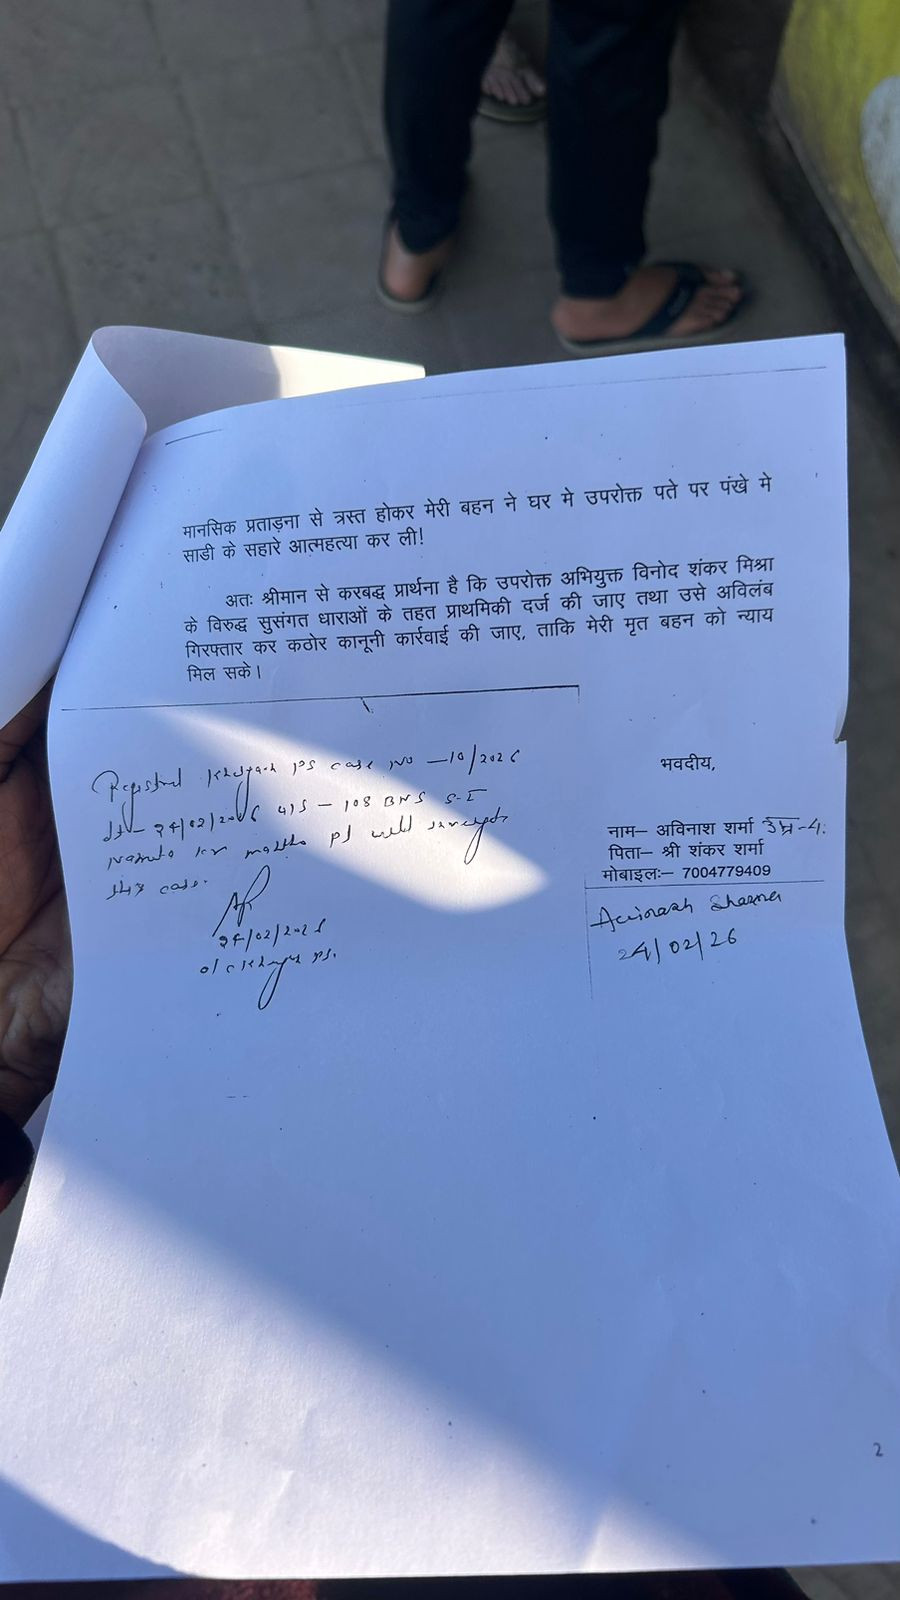 मानसिक प्रताड़ना से त्रस्त होकर मेरी बहन ने घर मे उपरोक्त पते पर पंखे मे
साडी के सहारे आत्महत्या कर ली!
अतः श्रीमान से करबद्ध प्रार्थना है कि उपरोक्त अभियुक्त विनोद शंकर मिश्रा
के विरुद्ध सुसंगत धाराओं के तहत प्राथमिकी दर्ज की जाए तथा उसे अविलंब
गिरफ्तार कर कठोर कानूनी कार्रवाई की जाए, ताकि मेरी मृत बहन को न्याय
मिल सके।
भवदीय,
नाम– अविनाश शर्मा
पिता– श्री शंकर शर्मा
मोबाइल:– 7004779409
Avinash Sharma
24/02/26
Registered PS case No – 10/2026
dt – 24/02/2026 u/s – 108 BNS S.I
PS will
this case.
24/02/2026
o/c PS.
2